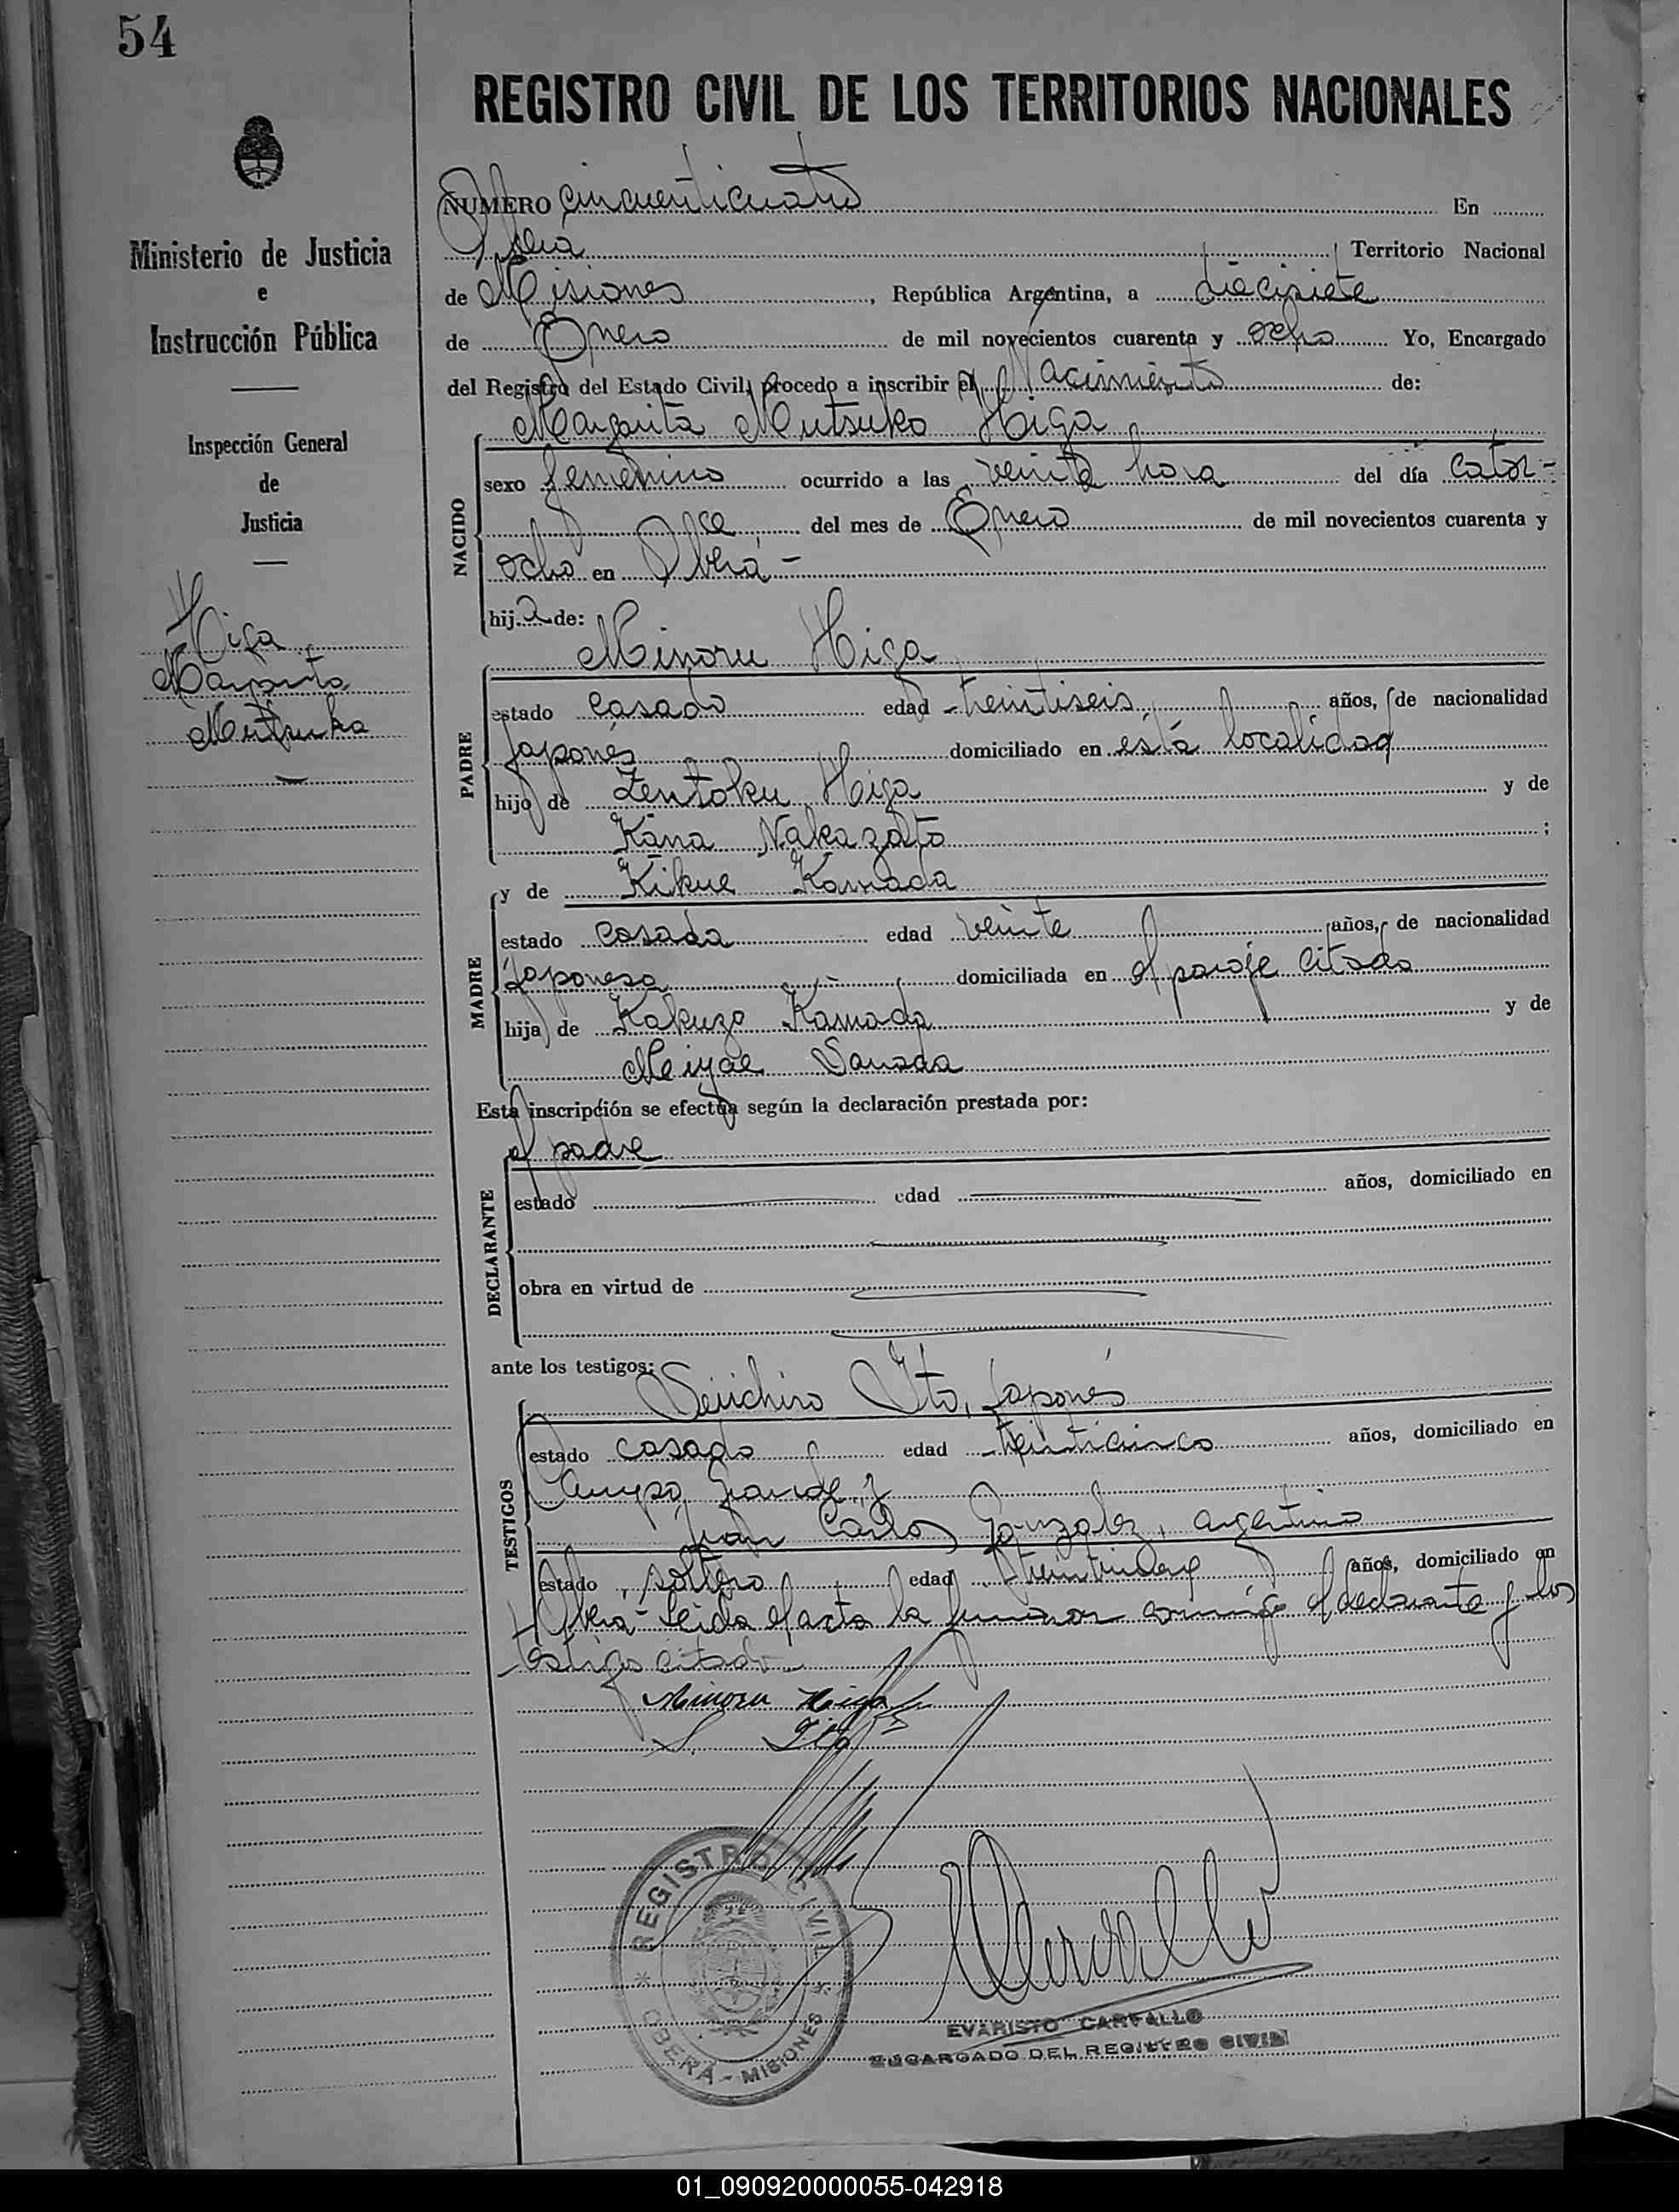 54
REGISTRO CIVIL DE LOS TERRITORIOS NACIONALES
Ministerio de Justicia
e
Instrucción Pública
Inspección General
de
Justicia
Higa
Margarita
Mutsuko
NUMERO cincuenticuatro En
Oberá Territorio Nacional
de Misiones, República Argentina, a diecisiete
de Enero de mil novecientos cuarenta y ocho Yo, Encargado
del Registro del Estado Civil, procedo a inscribir el Nacimiento de:
Margarita Mutsuko Higa
NACIDO
sexo femenino ocurrido a las veinte hora del día cator-
ce del mes de Enero de mil novecientos cuarenta y
ocho en Oberá-
hija de:
Minoru Higa
PADRE
estado casado edad treintiseis años, de nacionalidad
Japonés domiciliado en está localidad
hijo de Zentoku Higa y de
Kana Nakazato ;
y de Kikue Kamada
MADRE
estado casada edad veinte años, de nacionalidad
Japonesa domiciliada en el paraje citado
hija de Kakuzo Kamada y de
Meiyae Sanada
Esta inscripción se efectúa según la declaración prestada por:
el padre
DECLARANTE
estado edad años, domiciliado en
obra en virtud de
ante los testigos:
Seiichiro Ito, Japonés
TESTIGOS
estado casado edad treinticinco años, domiciliado en
Campo Grande y
Juan Carlos Gonzalez, argentino
estado soltero edad años, domiciliado en
Oberá- Leida el acta la firman conmigo el declarante y los
testigos citados
Minoru Higa
S. Ito
REGISTRO CIVIL
OBERÁ - MISIONES
EVARISTO CARVALLO
ENCARGADO DEL REGISTRO CIVIL
01_090920000055-042918